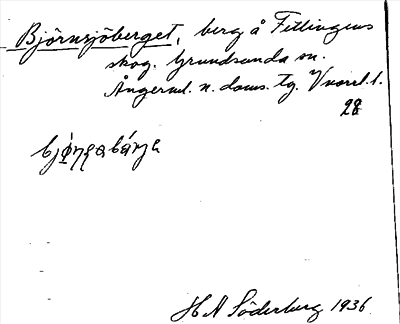 Björnsjöberget, berg å Fillingens
skog. Grundsunda sn.
Ångerml. n. doms. tg. V norrl. l.
28
H A Söderberg 1936